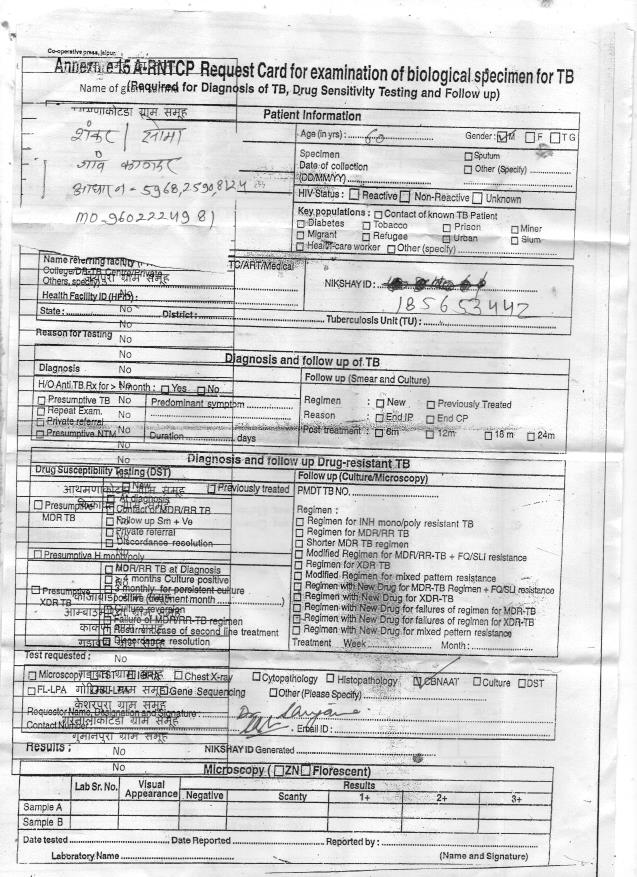 Co-operative press, Jaipur.
Annexure 15 A-RNTCP Request Card for examination of biological specimen for TB
(Required for Diagnosis of TB, Drug Sensitivity Testing and Follow up)
Name of
ग्राम समूह
Patient Information
शंकर / सोमा
Age (in yrs) : 60 Gender : M F TG
गाँव
Specimen Sputum
Date of collection Other (Specify)
(DD/MM/YY)
आधार न - 5968,2590,8124
HIV Status : Reactive Non-Reactive Unknown
MO-9602224981
Key populations : Contact of known TB Patient
Diabetes Tobacco Prison Miner
Migrant Refugee Urban Slum
Health care worker Other (specify)
Name referring facility TC/ART/Medical
College/DR-TB Centre/Private
Others, specify
ग्राम समूह
NIKSHAY ID :
185653442
Health Facility ID (HFID) :
State : District : Tuberculosis Unit (TU) :
No
Reason for Testing
No
Diagnosis and follow up of TB
Diagnosis Follow up (Smear and Culture)
H/O Anti.TB.Rx for > 1 month : Yes No
Presumptive TB No Predominant symptom Regimen : New Previously Treated
Repeat Exam. No Reason : End IP End CP
Private referral No
Presumptive NTM No Duration days Post treatment : 6m 12m 18 m 24m
Diagnosis and follow up Drug-resistant TB
Drug Susceptibility Testing (DST) Follow up (Culture/Microscopy)
ग्राम समूह
New Previously treated PMDT TB NO.
At diagnosis
Presumptive MDR TB Contact of MDR/RR TB Regimen :
Follow up Sm + Ve Regimen for INH mono/poly resistant TB
Private referral Regimen for MDR/RR TB
Discordance resolution Shorter MDR TB regimen
Presumptive H mono/poly Modified Regimen for MDR/RR-TB + FQ/SLI resistance
MDR/RR TB at Diagnosis Regimen for XDR TB
4 months Culture positive Modified Regimen for mixed pattern resistance
Presumptive XDR TB 3 monthly, for persistent culture Regimen with New Drug for MDR-TB Regimen + FQ/SLI resistance
positive (treatment month ) Regimen with New Drug for XDR-TB
Culture reversion Regimen with New Drug for failures of regimen for MDR-TB
Failure of MDR/RR-TB regimen Regimen with New Drug for failures of regimen for XDR-TB
Recurrent case of second line treatment Regimen with New Drug for mixed pattern resistance
Discordance resolution Treatment Week Month :
Test requested : No
Microscopy TST IGRA Chest X-ray Cytopathology Histopathology CBNAAT Culture DST
FL-LPA SL-LPA Gene Sequencing Other (Please Specify)
केशरपुरा ग्राम समूह
Requestor Name, Designation and Signature :
Contact Number : Email ID :
गुमानपुरा ग्राम समूह
Results : No NIKSHAY ID Generated
No
Microscopy ( ZN Florescent)
Lab Sr. No. Visual Appearance Results
Negative Scanty 1+ 2+ 3+
Sample A
Sample B
Date tested Date Reported Reported by :
Laboratory Name (Name and Signature)